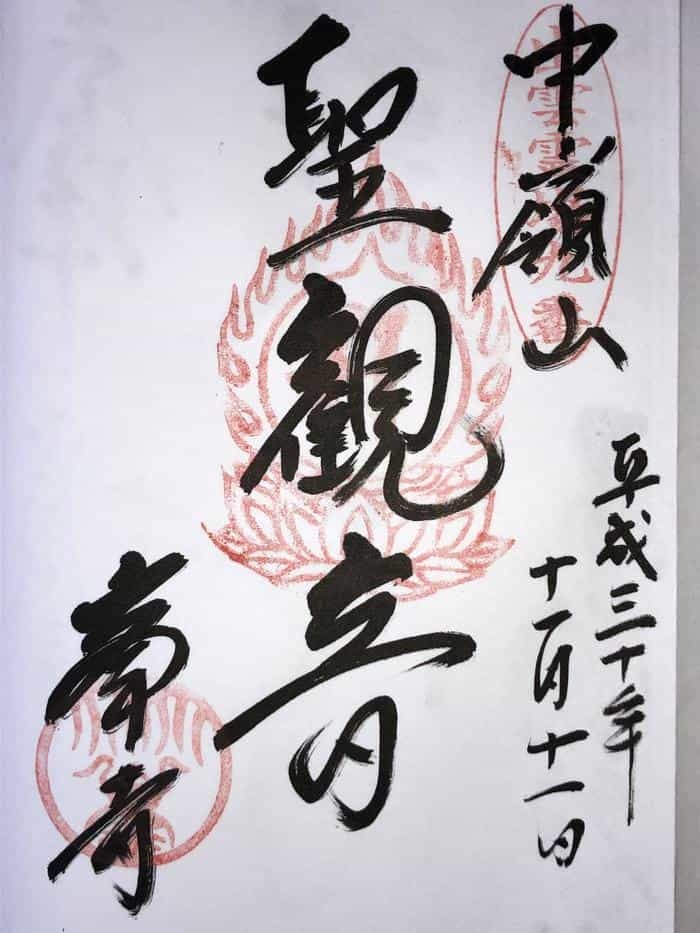 中嶺山
平成三十年
十一月十一日
聖観音
寺